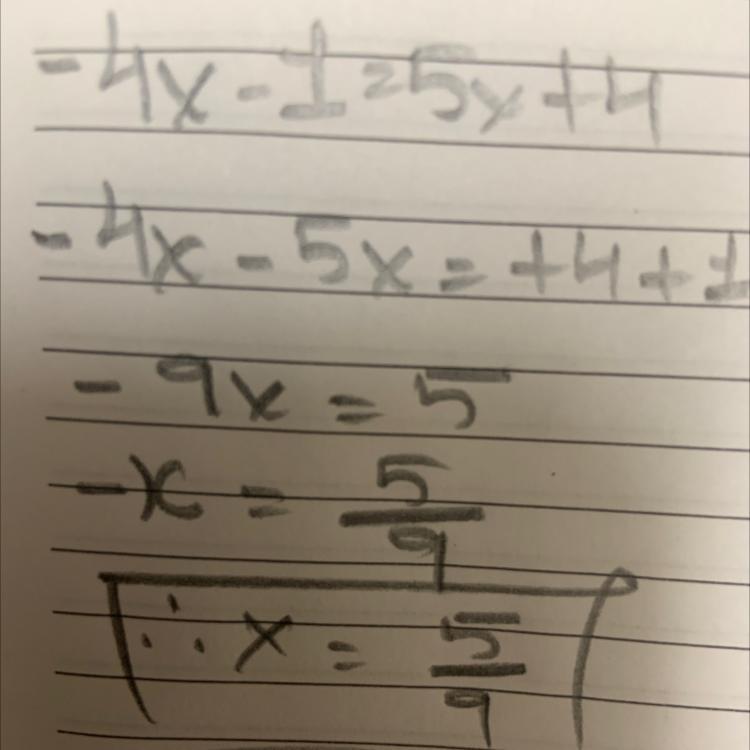 -4x - 1 = 5x + 4
-4x - 5x = +4 + 1
-9x = 5
-x = 5/9
∴ x = 5/9